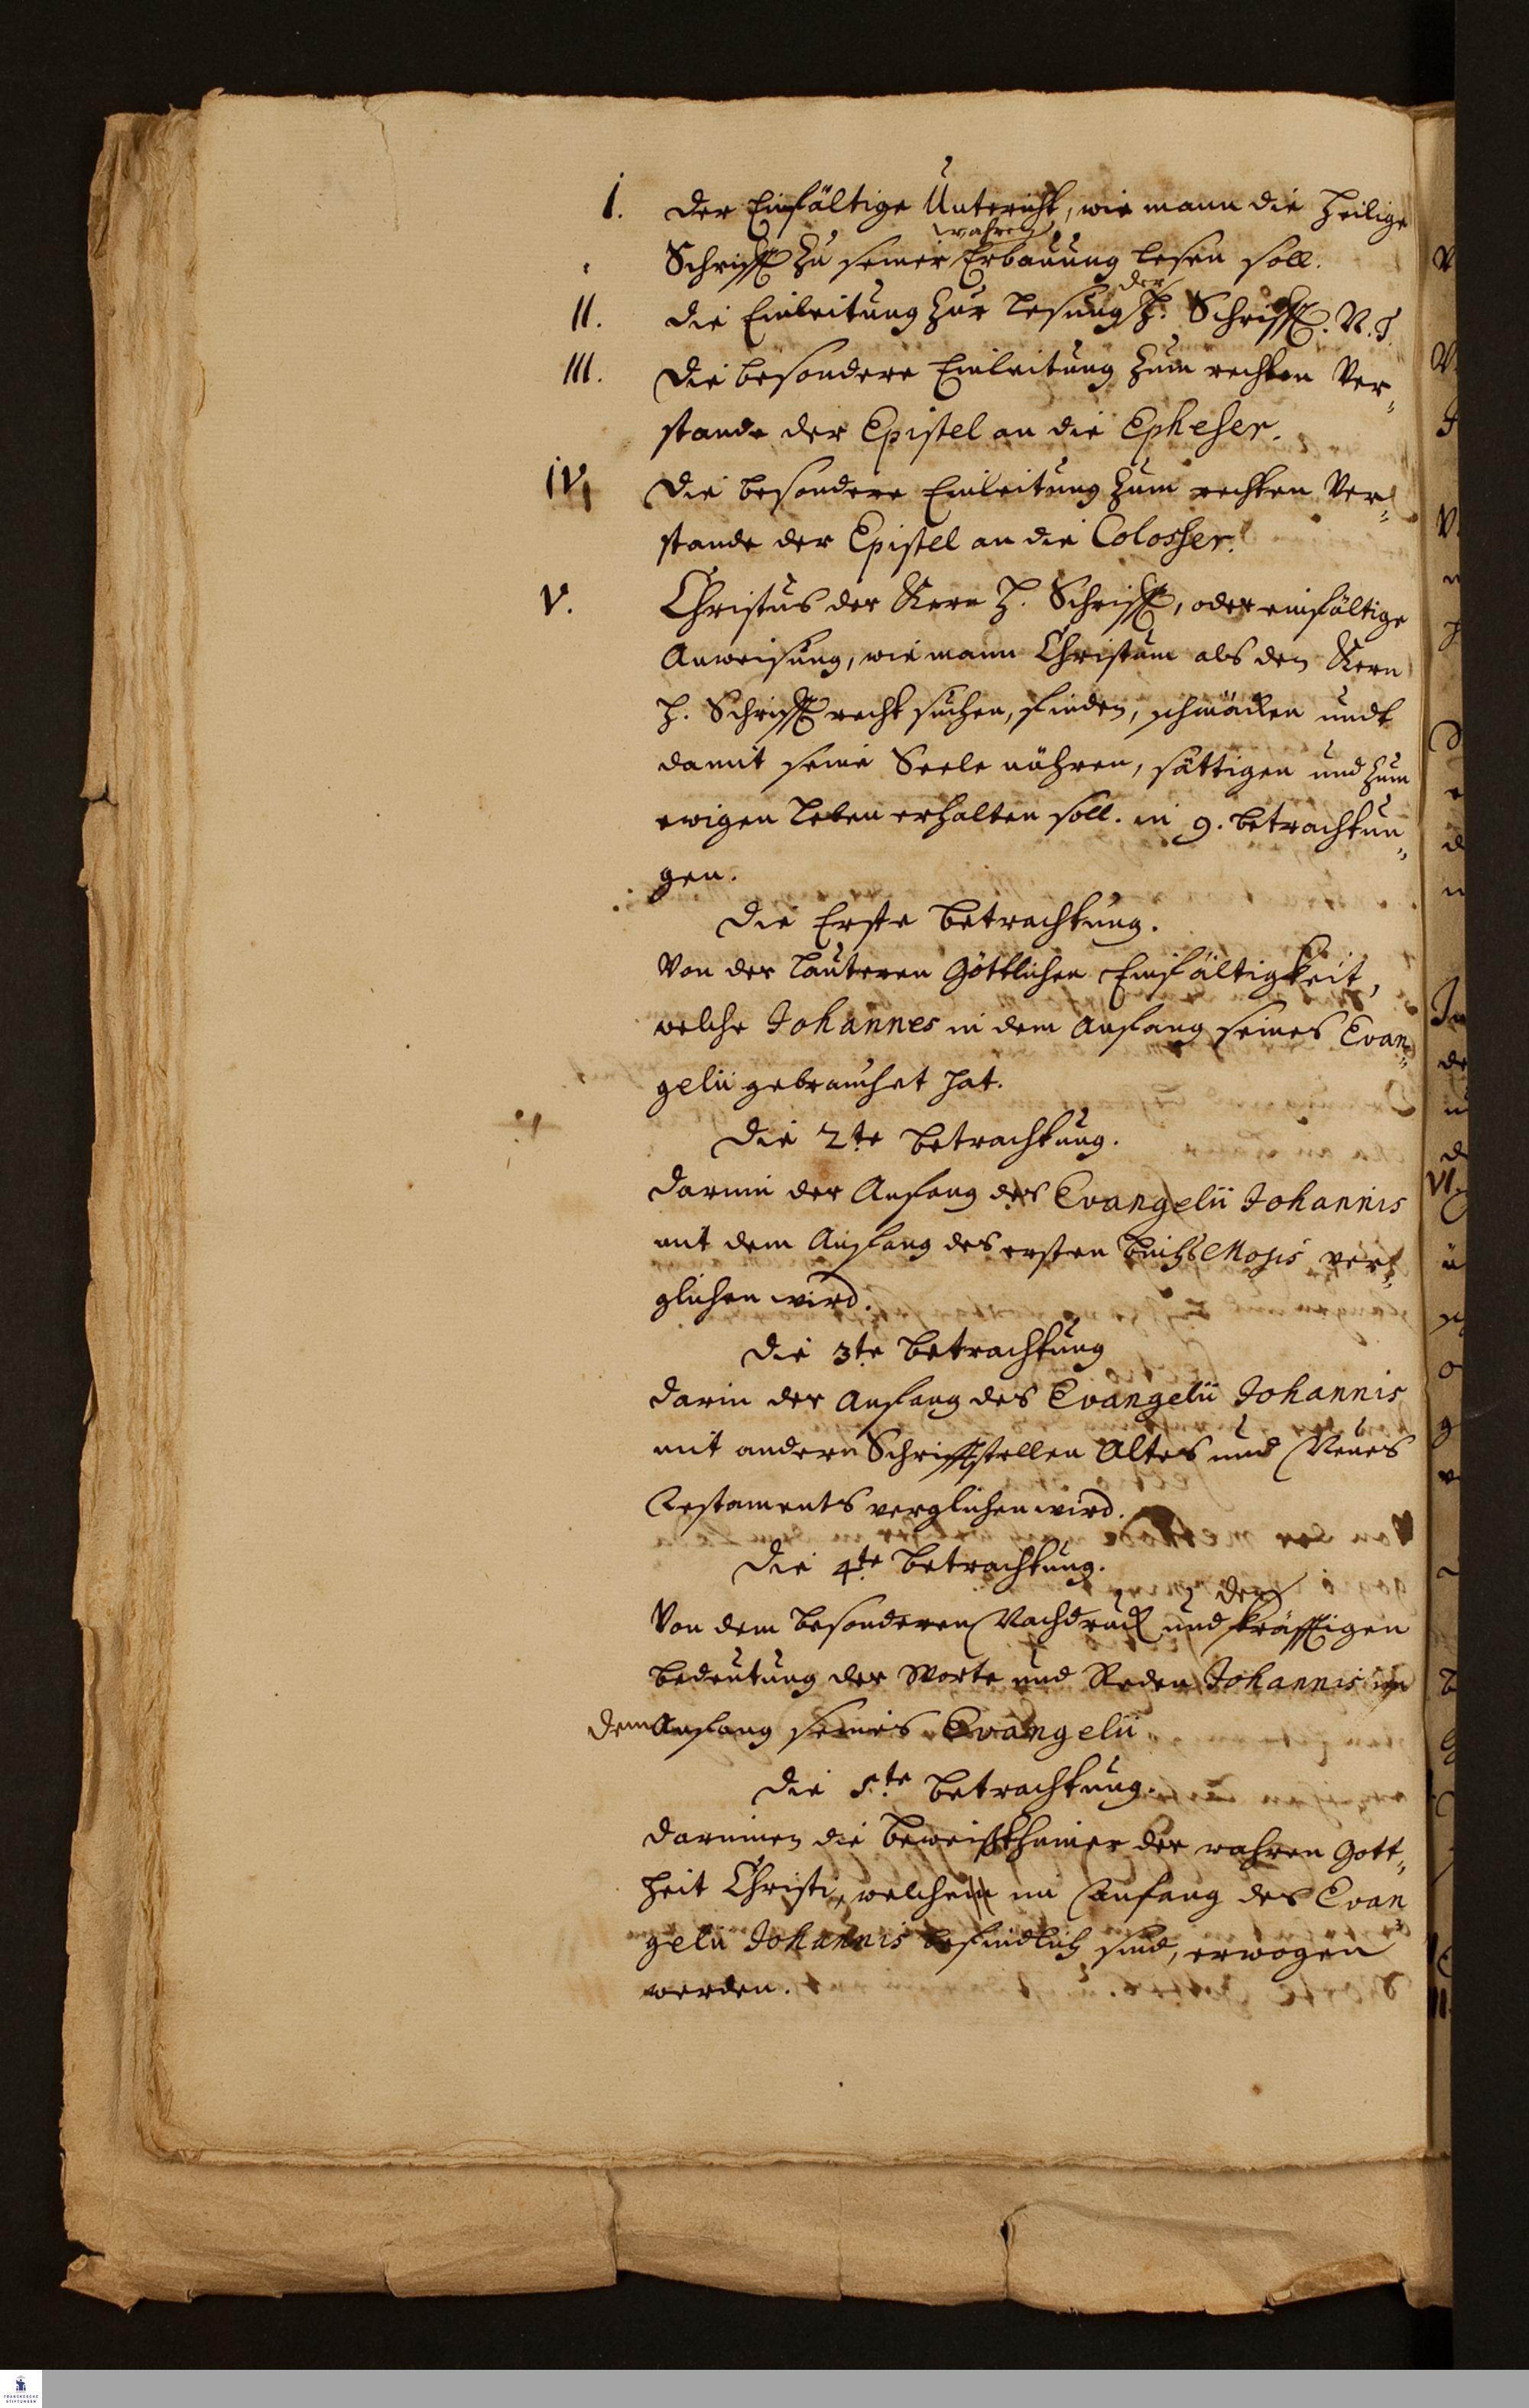 I. Der Einfältige Untericht, wie mann die heilige
wahren
Schrifft zu seiner Erbauung lesen soll.
der
II. Die Einleitung zur Lesung H. Schrifft. N. T.
III. Die besondere Einleitung zum rechten Ver-
stande der Epistel an die Epheser.
IV. Die besondere Einleitung zum rechten Ver-
stande der Epistel an die Colosser.
V. Christus der Kern H. Schrifft, oder einfältige
Anweisung, wie mann Christum als den Kern
H. Schrifft recht suchen, finden, schmäcken undt
damit seine Seele nähren, sättigen und zum
ewigen Leben erhalten soll. in 9. Betrachtun-
gen.
Die Erste Betrachtung.
Von der lauteren Göttlichen Einfältigkeit,
welche Johannes in dem Anfang seines Evan-
gelii gebrauchet hat.
Die 2te Betrachtung.
Darinn der Anfang des Evangelii Johannis
mit dem Anfang des ersten Buchs Mosis ver-
glichen wird.
Die 3te Betrachtung
Darin der Anfang des Evangelii Johannis
mit andern Schrifftstellen Altes und Neues
Testaments verglichen wird.
Die 4te Betrachtung.
der
Von dem besonderen Nachdruck und kräfftigen
Bedeutung der Worte und Reden Johannis in
dem Anfang seines Evangelii
Die 5te Betrachtung.
Darinnen die Beweißthümer der wahren Gott-
heit Christi, welche im Anfang des Evan-
gelii Johannis befindlich sind, erwogen
werden.
FRANCKESCHE
STIFTUNGEN